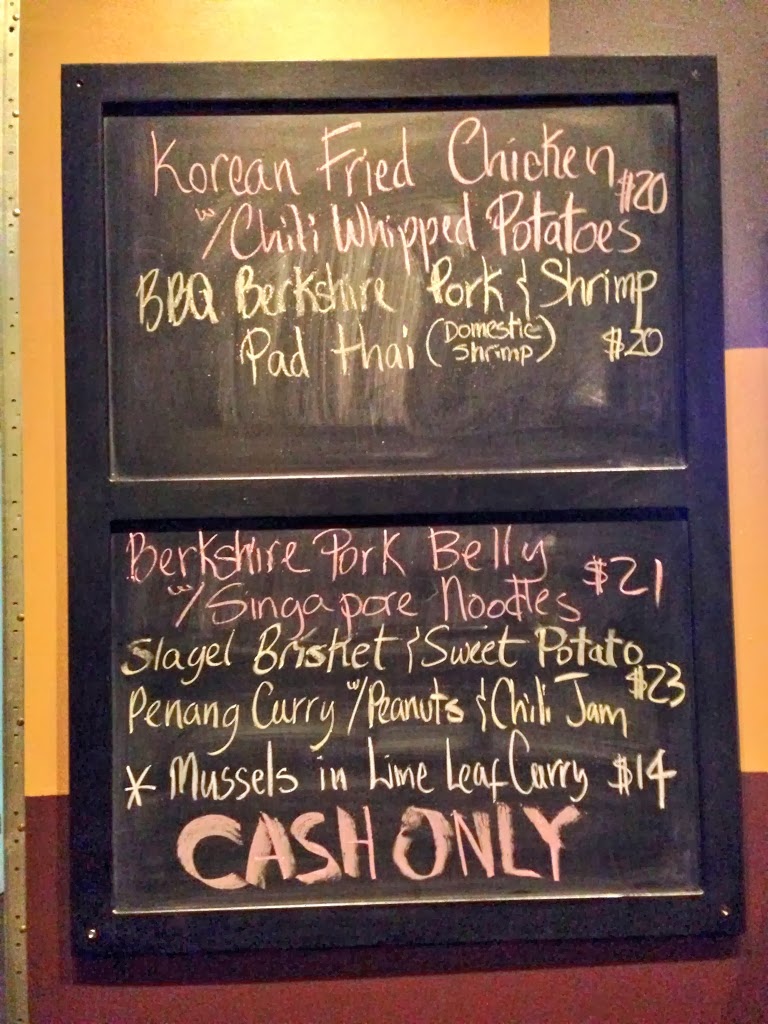 Korean Fried Chicken $20
w/Chili Whipped Potatoes
BBQ Berkshire Pork & Shrimp
Pad thai (Domestic shrimp) $20
Berkshire Pork Belly
w/Singapore Noodles $21
Slagel Brisket & Sweet Potato
Penang Curry w/Peanuts & Chili Jam $23
* Mussels in Lime Leaf Curry $14
CASH ONLY